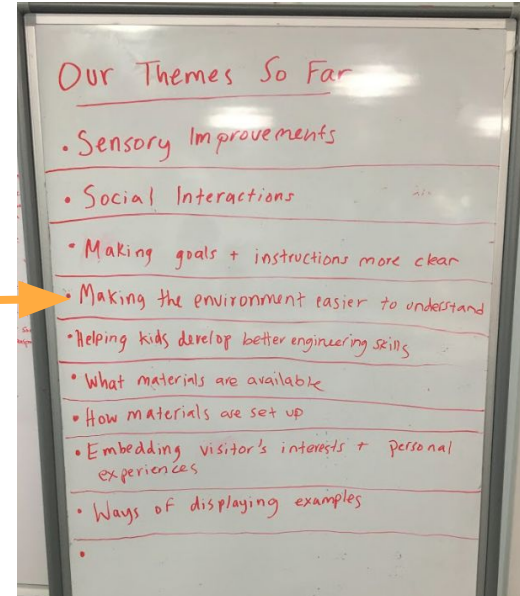 Our Themes So Far
• Sensory Improvements
• Social Interactions
• Making goals + instructions more clear
• Making the environment easier to understand
• Helping kids develop better engineering skills
• What materials are available
• How materials are set up
• Embedding visitor's interests + personal
experiences
• Ways of displaying examples
•